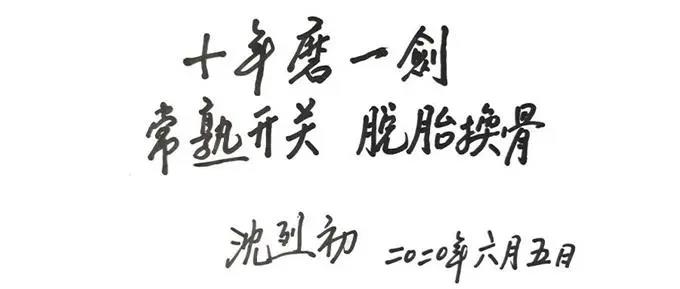 十年磨一劍
常熟开关 脱胎换骨
沈烈初 二〇二〇年六月五日